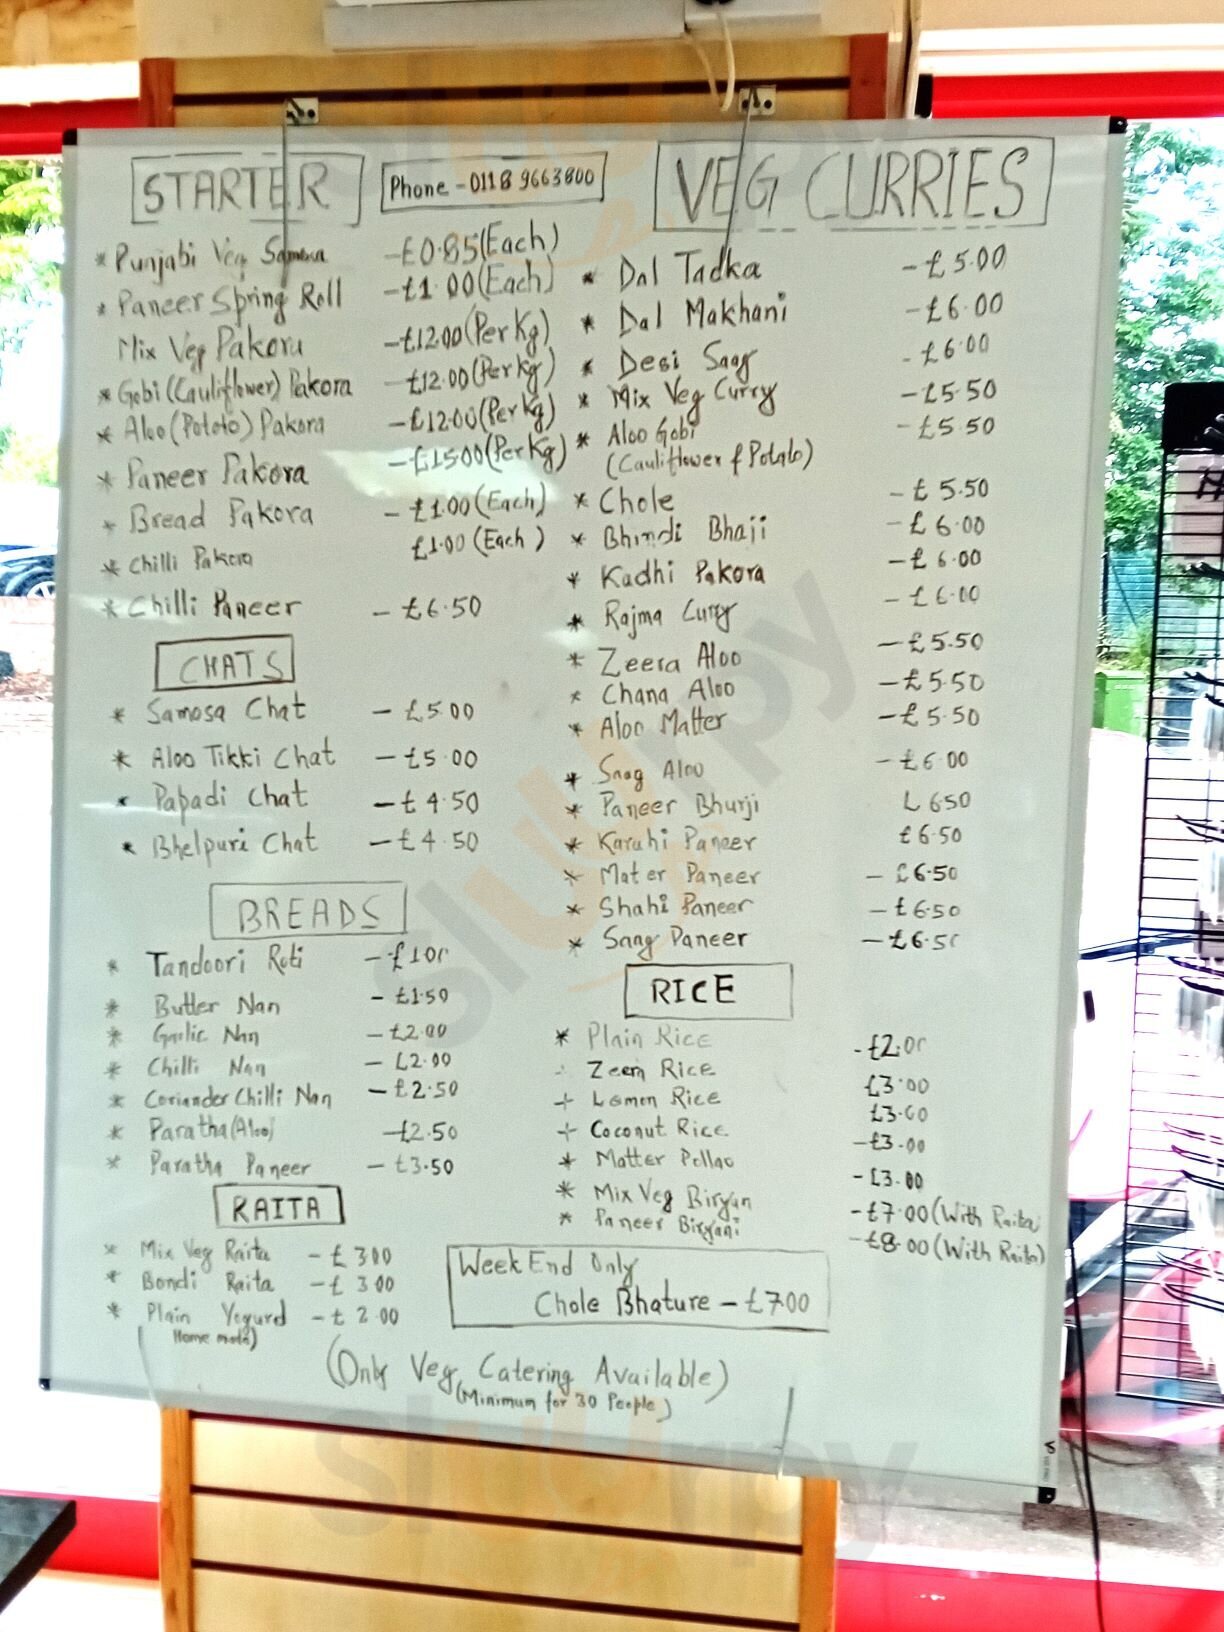 STARTER
Phone - 0118 9663800
* Punjabi Veg Samosa - £0.85 (Each)
* Paneer Spring Roll - £1.00 (Each)
Mix Veg Pakora - £12.00 (Per Kg)
* Gobi (Cauliflower) Pakora - £12.00 (Per Kg)
* Aloo (Potato) Pakora - £12.00 (Per Kg)
* Paneer Pakora - £15.00 (Per Kg)
* Bread Pakora - £1.00 (Each)
* Chilli Pakora £1.00 (Each)
* Chilli Paneer - £6.50
CHATS
* Samosa Chat - £5.00
* Aloo Tikki Chat - £5.00
* Papadi Chat - £4.50
* Bhelpuri Chat - £4.50
BREADS
* Tandoori Roti - £1.00
* Butter Nan - £1.50
* Garlic Nan - £2.00
* Chilli Nan - £2.00
* Coriander Chilli Nan - £2.50
* Paratha (Aloo) - £2.50
* Paratha Paneer - £3.50
RAITA
* Mix Veg Raita - £3.00
* Bondi Raita - £3.00
* Plain Yogurd - £2.00
Home made)
VEG CURRIES
* Dal Tadka - £5.00
* Dal Makhani - £6.00
* Desi Saag - £6.00
* Mix Veg Curry - £5.50
* Aloo Gobi - £5.50
(Cauliflower & Potato)
* Chole - £5.50
* Bhindi Bhaji - £6.00
* Kadhi Pakora - £6.00
* Rajma Curry - £6.00
* Zeera Aloo - £5.50
* Chana Aloo - £5.50
* Aloo Matter - £5.50
* Saag Aloo - £6.00
* Paneer Bhurji £6.50
* Karahi Paneer £6.50
* Mater Paneer - £6.50
* Shahi Paneer - £6.50
* Saag Paneer - £6.50
RICE
* Plain Rice - £2.00
Zeera Rice £3.00
+ Lemon Rice £3.00
+ Coconut Rice - £3.00
* Matter Pollao - £3.00
* Mix Veg Biryan - £7.00 (With Raita)
* Paneer Biryani - £8.00 (With Raita)
Week End Only
Chole Bhature - £7.00
(Only Veg Catering Available)
(Minimum for 30 People)
slurpy